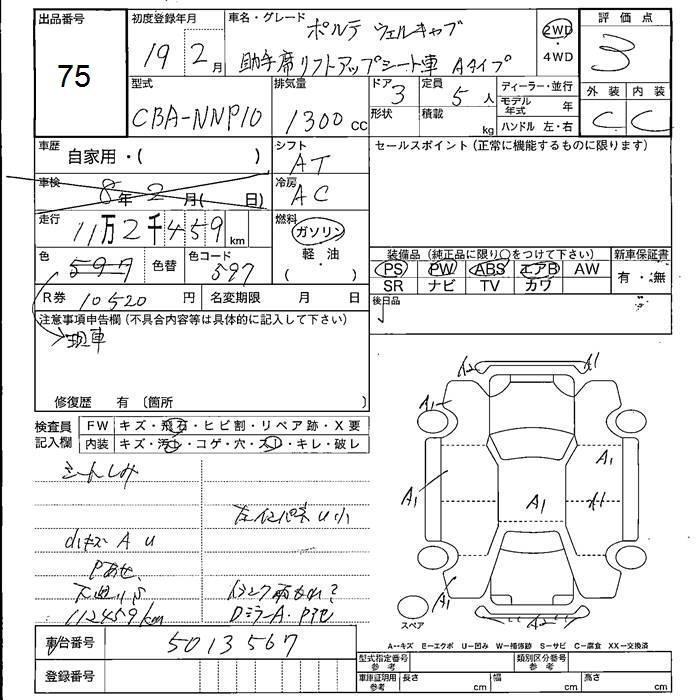 出品番号
75
初度登録年月
19 2月
車名・グレード
ポルテ ウェルキャブ
助手席リフトアップシート車 Aタイプ
2WD
・
4WD
評価点
3
外装 内装
C C
型式
CBA-NNP10
排気量
1300cc
ドア
3
形状
定員
5人
積載
kg
ディーラー・並行
モデル年式 年
ハンドル 左・右
車歴
自家用・( )
シフト
AT
車検
8年2月( 日)
冷房
AC
走行
11万2千459km
燃料
ガソリン
軽・油
( )
色
597
色替
色コード
597
R券 10520円
名変期限 月 日
セールスポイント(正常に機能するものに限ります)
装備品(純正品に限り○をつけて下さい)
PS PW ABS エアB AW
SR ナビ TV カワ
新車保証書
有・無
後日品
注意事項申告欄(不具合内容等は具体的に記入して下さい)
現車
修復歴 有 〔箇所 〕
検査員
記入欄
FW キズ・飛石・ヒビ割・リペア跡・X要
内装 キズ・汚れ・コゲ・穴・スレ・キレ・破レ
シートしみ
小キズ A U
112459km
Dミラー A
A2 A1
A1
A1
A1
A1
A1
A1
A2
スペア
A--キズ E--エクボ U--凹み W--補修跡 S--サビ C--腐食 XX--交換済
車台番号
5013567
登録番号
型式指定番号
参考
類別区分番号
参考
車庫証明用
参考
長さ cm
幅 cm
高さ cm